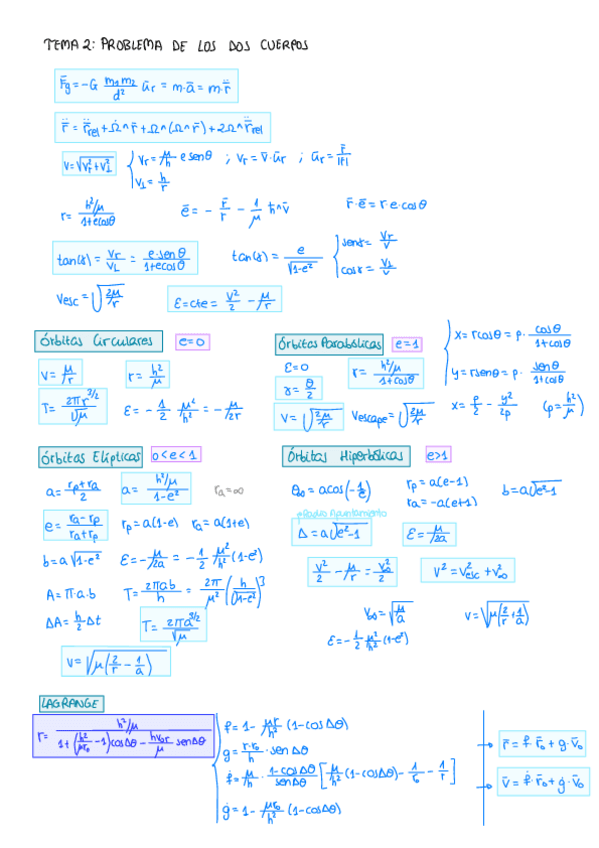 TEMA 2: PROBLEMA DE LOS DOS CUERPOS
F̄g = -G m₁m₂/d² ūr = m·ā = m·r̄̈
r̄̈ = r̄̈rel + Ω̇∧r̄ + Ω∧(Ω∧r̄) + 2Ω∧r̄̈rel
v = √(vr² + v⊥²) { vr = μ/h e senθ ; vr = v̄·ūr ; ūr = r̄/|r̄|
v⊥ = h/r
r = (h²/μ)/(1+ecosθ) ē = - r̄/r - 1/μ h̄∧v̄ r̄·ē = r·e·cosθ
tan(γ) = vr/v⊥ = e·senθ/(1+ecosθ) tan(γ) = e/√(1-e²) { senγ = vr/v
cosγ = v⊥/v
Vesc = √(2μ/r) ℰ = cte = v²/2 - μ/r
Órbitas Circulares e=0
v = √(μ/r) r = h²/μ
T = 2πr^(3/2)/√μ ℰ = - 1/2 μ²/h² = - μ/2r
Órbitas Parabólicas e=1
ℰ=0 r = (h²/μ)/(1+cosθ)
γ = θ/2
v = √(2μ/r) Vescape = √(2μ/r)
{ x = rcosθ = p· cosθ/(1+cosθ)
y = rsenθ = p· senθ/(1+cosθ)
x = p/2 - y²/2p (p = h²/μ)
Órbitas Elípticas 0<e<1
a = (rp+ra)/2 a = (h²/μ)/(1-e²) ra=∞
e = (ra-rp)/(ra+rp) rp = a(1-e) ra = a(1+e)
b = a√(1-e²) ℰ = - μ/2a = - 1/2 μ²/h² (1-e²)
A = π·a·b T = 2πab/h = 2π/μ² (h/√(1-e²))³
ΔA = h/2·Δt T = 2πa^(3/2)/√μ
v = √(μ(2/r - 1/a))
Órbitas Hiperbólicas e>1
θ∞ = acos(-1/e) rp = a(e-1) b = a√(e²-1)
ra = -a(e+1)
Δ = a√(e²-1) ℰ = μ/2a
v²/2 - μ/r = v∞²/2 v² = v²esc + v²∞
v∞ = √(μ/a) v = √(μ(2/r + 1/a))
ℰ = - 1/2 μ²/h² (1-e²)
LAGRANGE
r = (h²/μ)/(1 + (h²/μr₀ - 1)cosΔθ - hvr₀/μ senΔθ)
f = 1 - μr/h² (1-cosΔθ)
g = r·r₀/h · senΔθ
ḟ = μ/h · (1-cosΔθ)/senΔθ [μ/h² (1-cosΔθ) - 1/r₀ - 1/r]
ġ = 1 - μr₀/h² (1-cosΔθ)
→ r̄ = f·r̄₀ + g·v̄₀
→ v̄ = ḟ·r̄₀ + ġ·v̄₀